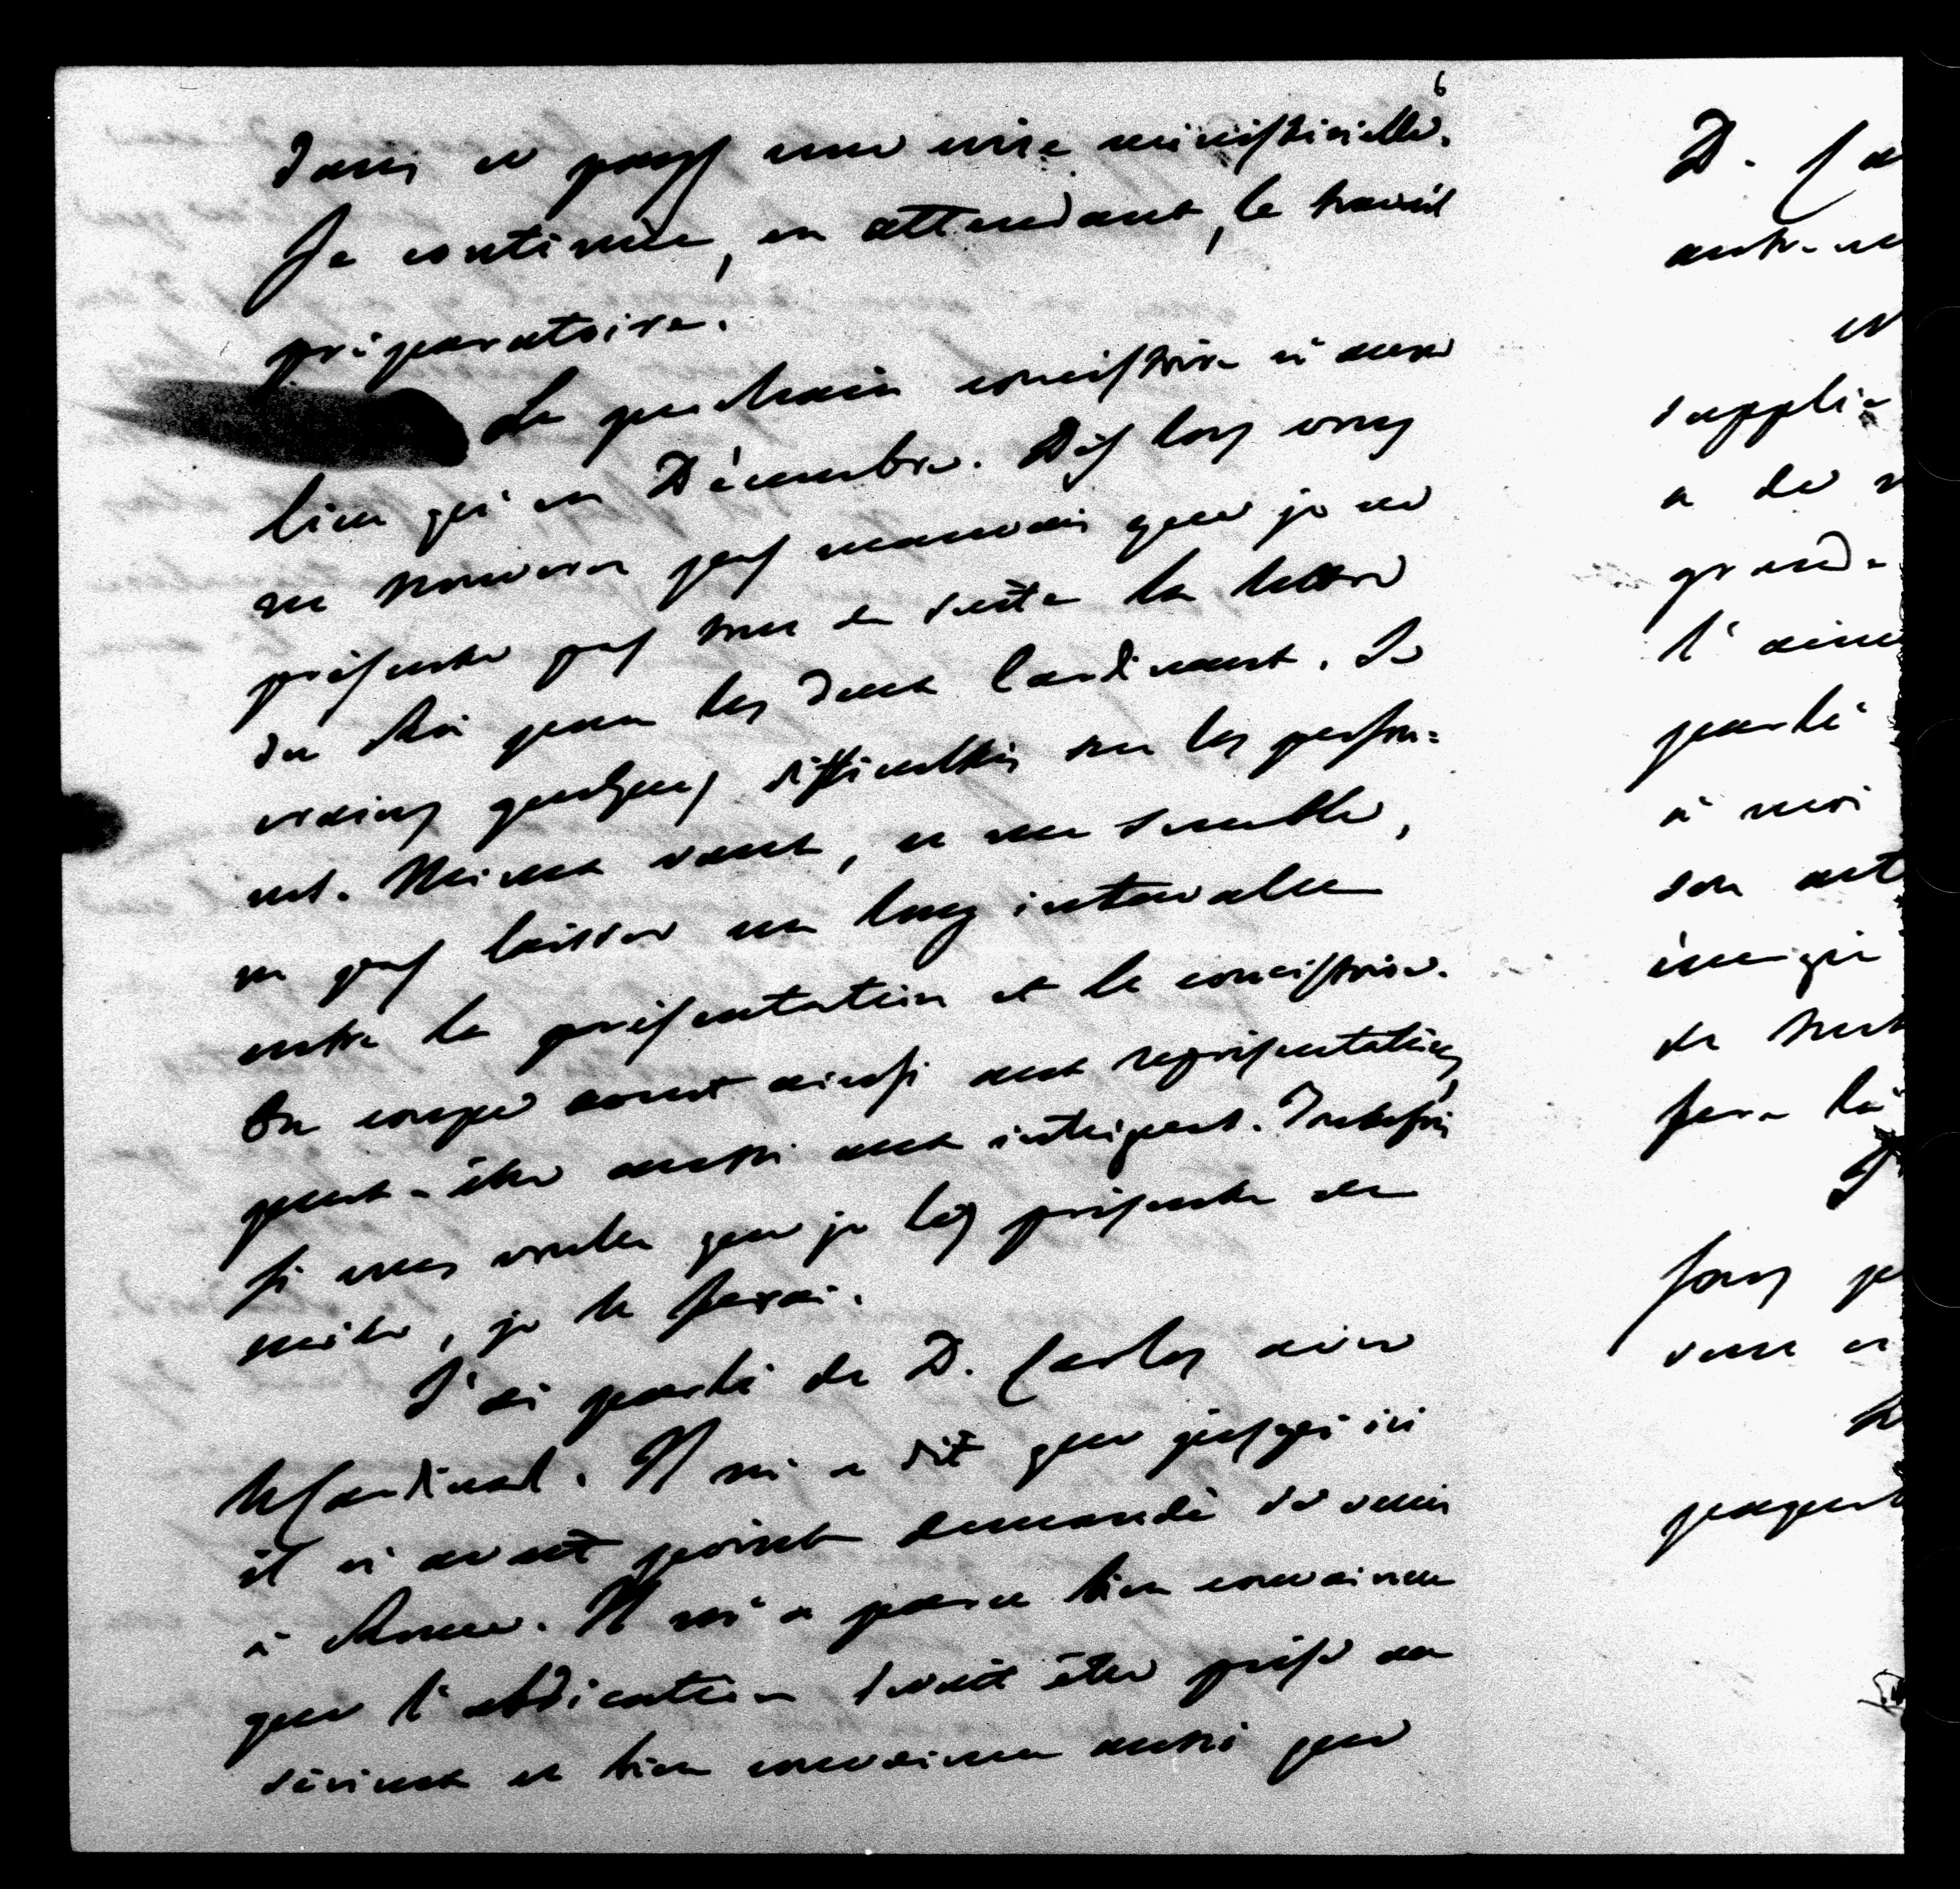 6
dans ce pays une crise ministérielle.
Je continue, en attendant, le travail
préparatoire.
Le prochain consistoire n'aura
lieu qu'en Décembre. Dès lors vous
ne trouverez pas mauvais que je ne
présente pas tout de suite la lettre
du Roi pour les deux Cardinaux. Je
crains quelques difficultés sur les person-
nes. Mieux vaut, ce me semble,
ne pas laisser un long intervalle
entre la présentation et le consistoire.
On coupe court ainsi aux représentations,
peut-être aussi aux intrigues. Toutefois
si vous voulez que je les présente de
suite, je le ferai.
J'ai parlé de D. Carlos avec
le Cardinal. Il m'a dit que jusqu'ici
il n'avait point demandé de venir
à Rome. Il m'a paru bien convaincu
que l'abdication devait être prise au
sérieux et bien convaincu aussi que
D. Ca
autre
supplie
a de
grande
l'aim
parlé
à moi
son
énergie
de
sera là
sous
venu